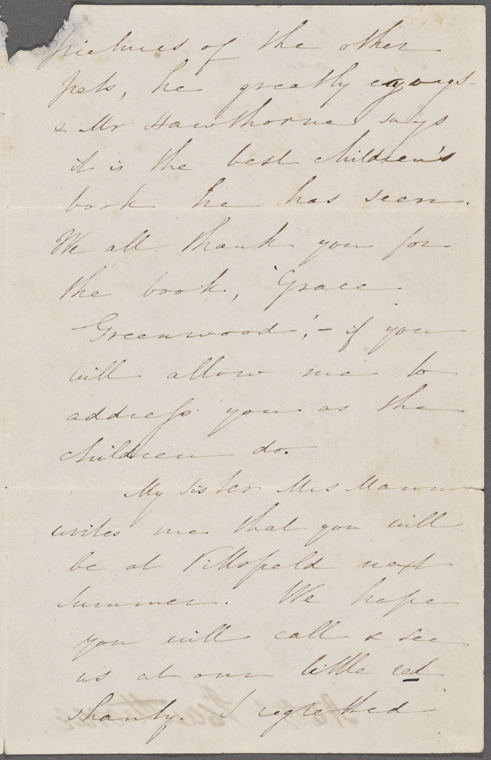 pictures of the other
pets, he greatly enjoys -
& Mr Hawthorne says
it is the best children's
book he has seen.
We all thank you for
the book, 'Grace
Greenwood', - if you
will allow me to
address you as the
children do.
My sister Mrs Mann
writes me that you will
be at Pittsfield next
summer. We hope
you will call & see
us at our little red
shanty. I regretted